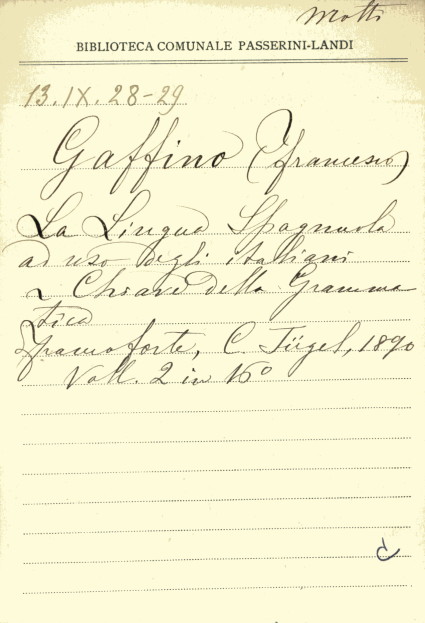 Motti
BIBLIOTECA COMUNALE PASSERINI-LANDI
13.IX.28-29
Gaffino (Francesco)
La Lingua Spagnuola
ad uso degli italiani
e Chiave della Gramma
tica
C. Jügel, 1890
Voll. 2 in 16°